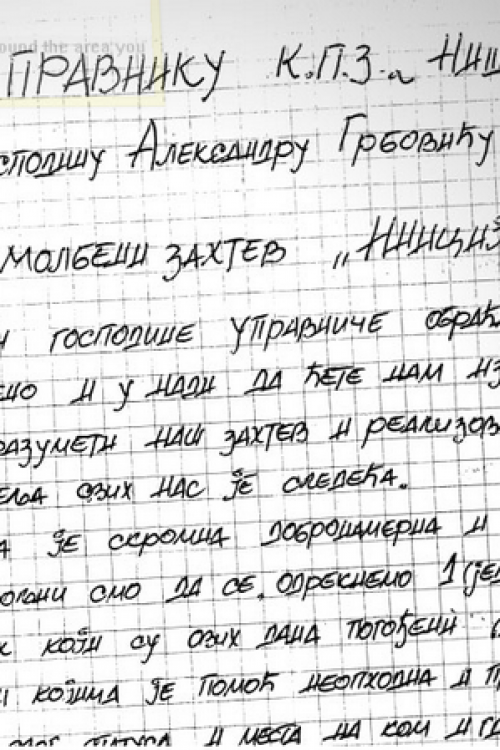 ound the area you
ПРАВНИКУ К.П.З. НИШ
СПОДИНУ АЛЕКСАНДРУ ГРБОВИЋУ
МОЛБЕНИ ЗАХТЕВ „ИНИЦИЈ
ГОСПОДИНЕ УПРАВНИЧЕ ОБРАЋ
И У НАДИ ДА ЋЕТЕ НАМ ИЗ
РАЗУМЕТИ НАШ ЗАХТЕВ И РЕАЛИЗОВ
ЕЉА СВИХ НАС ЈЕ СЛЕДЕЋА.
А ЈЕ СКРОМНА ДОБРОНАМЕРНА И
СМО ДА СЕ ОДРЕКНЕМО 1 (ЈЕ
КОЈИ СУ ОВИХ ДАНА ПОГОЂЕНИ
И КОЈИМА ЈЕ ПОМОЋ НЕОПХОДНА И П
И МЕСТА НА КОМ И